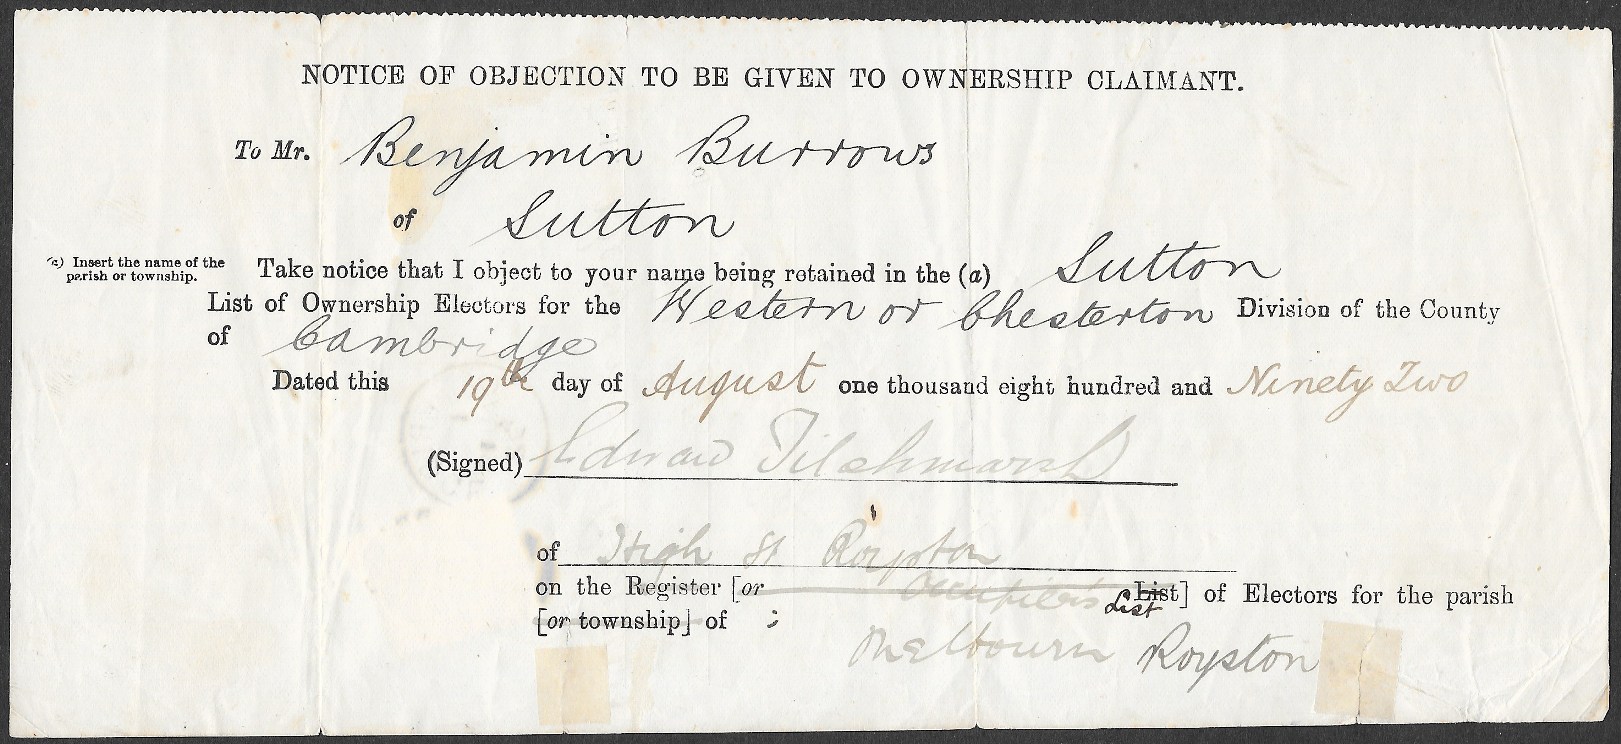 NOTICE OF OBJECTION TO BE GIVEN TO OWNERSHIP CLAIMANT.
To Mr. Benjamin Burrows
of Sutton
(a) Insert the name of the parish or township.
Take notice that I object to your name being retained in the (a) Sutton
List of Ownership Electors for the Western or Chesterton Division of the County
of Cambridge
Dated this 19th day of August one thousand eight hundred and Ninety Two
(Signed) Edward Titchmarsh
of High St Royston
on the Register [or Occupiers List] of Electors for the parish
List
[or township] of ;
Melbourn Royston